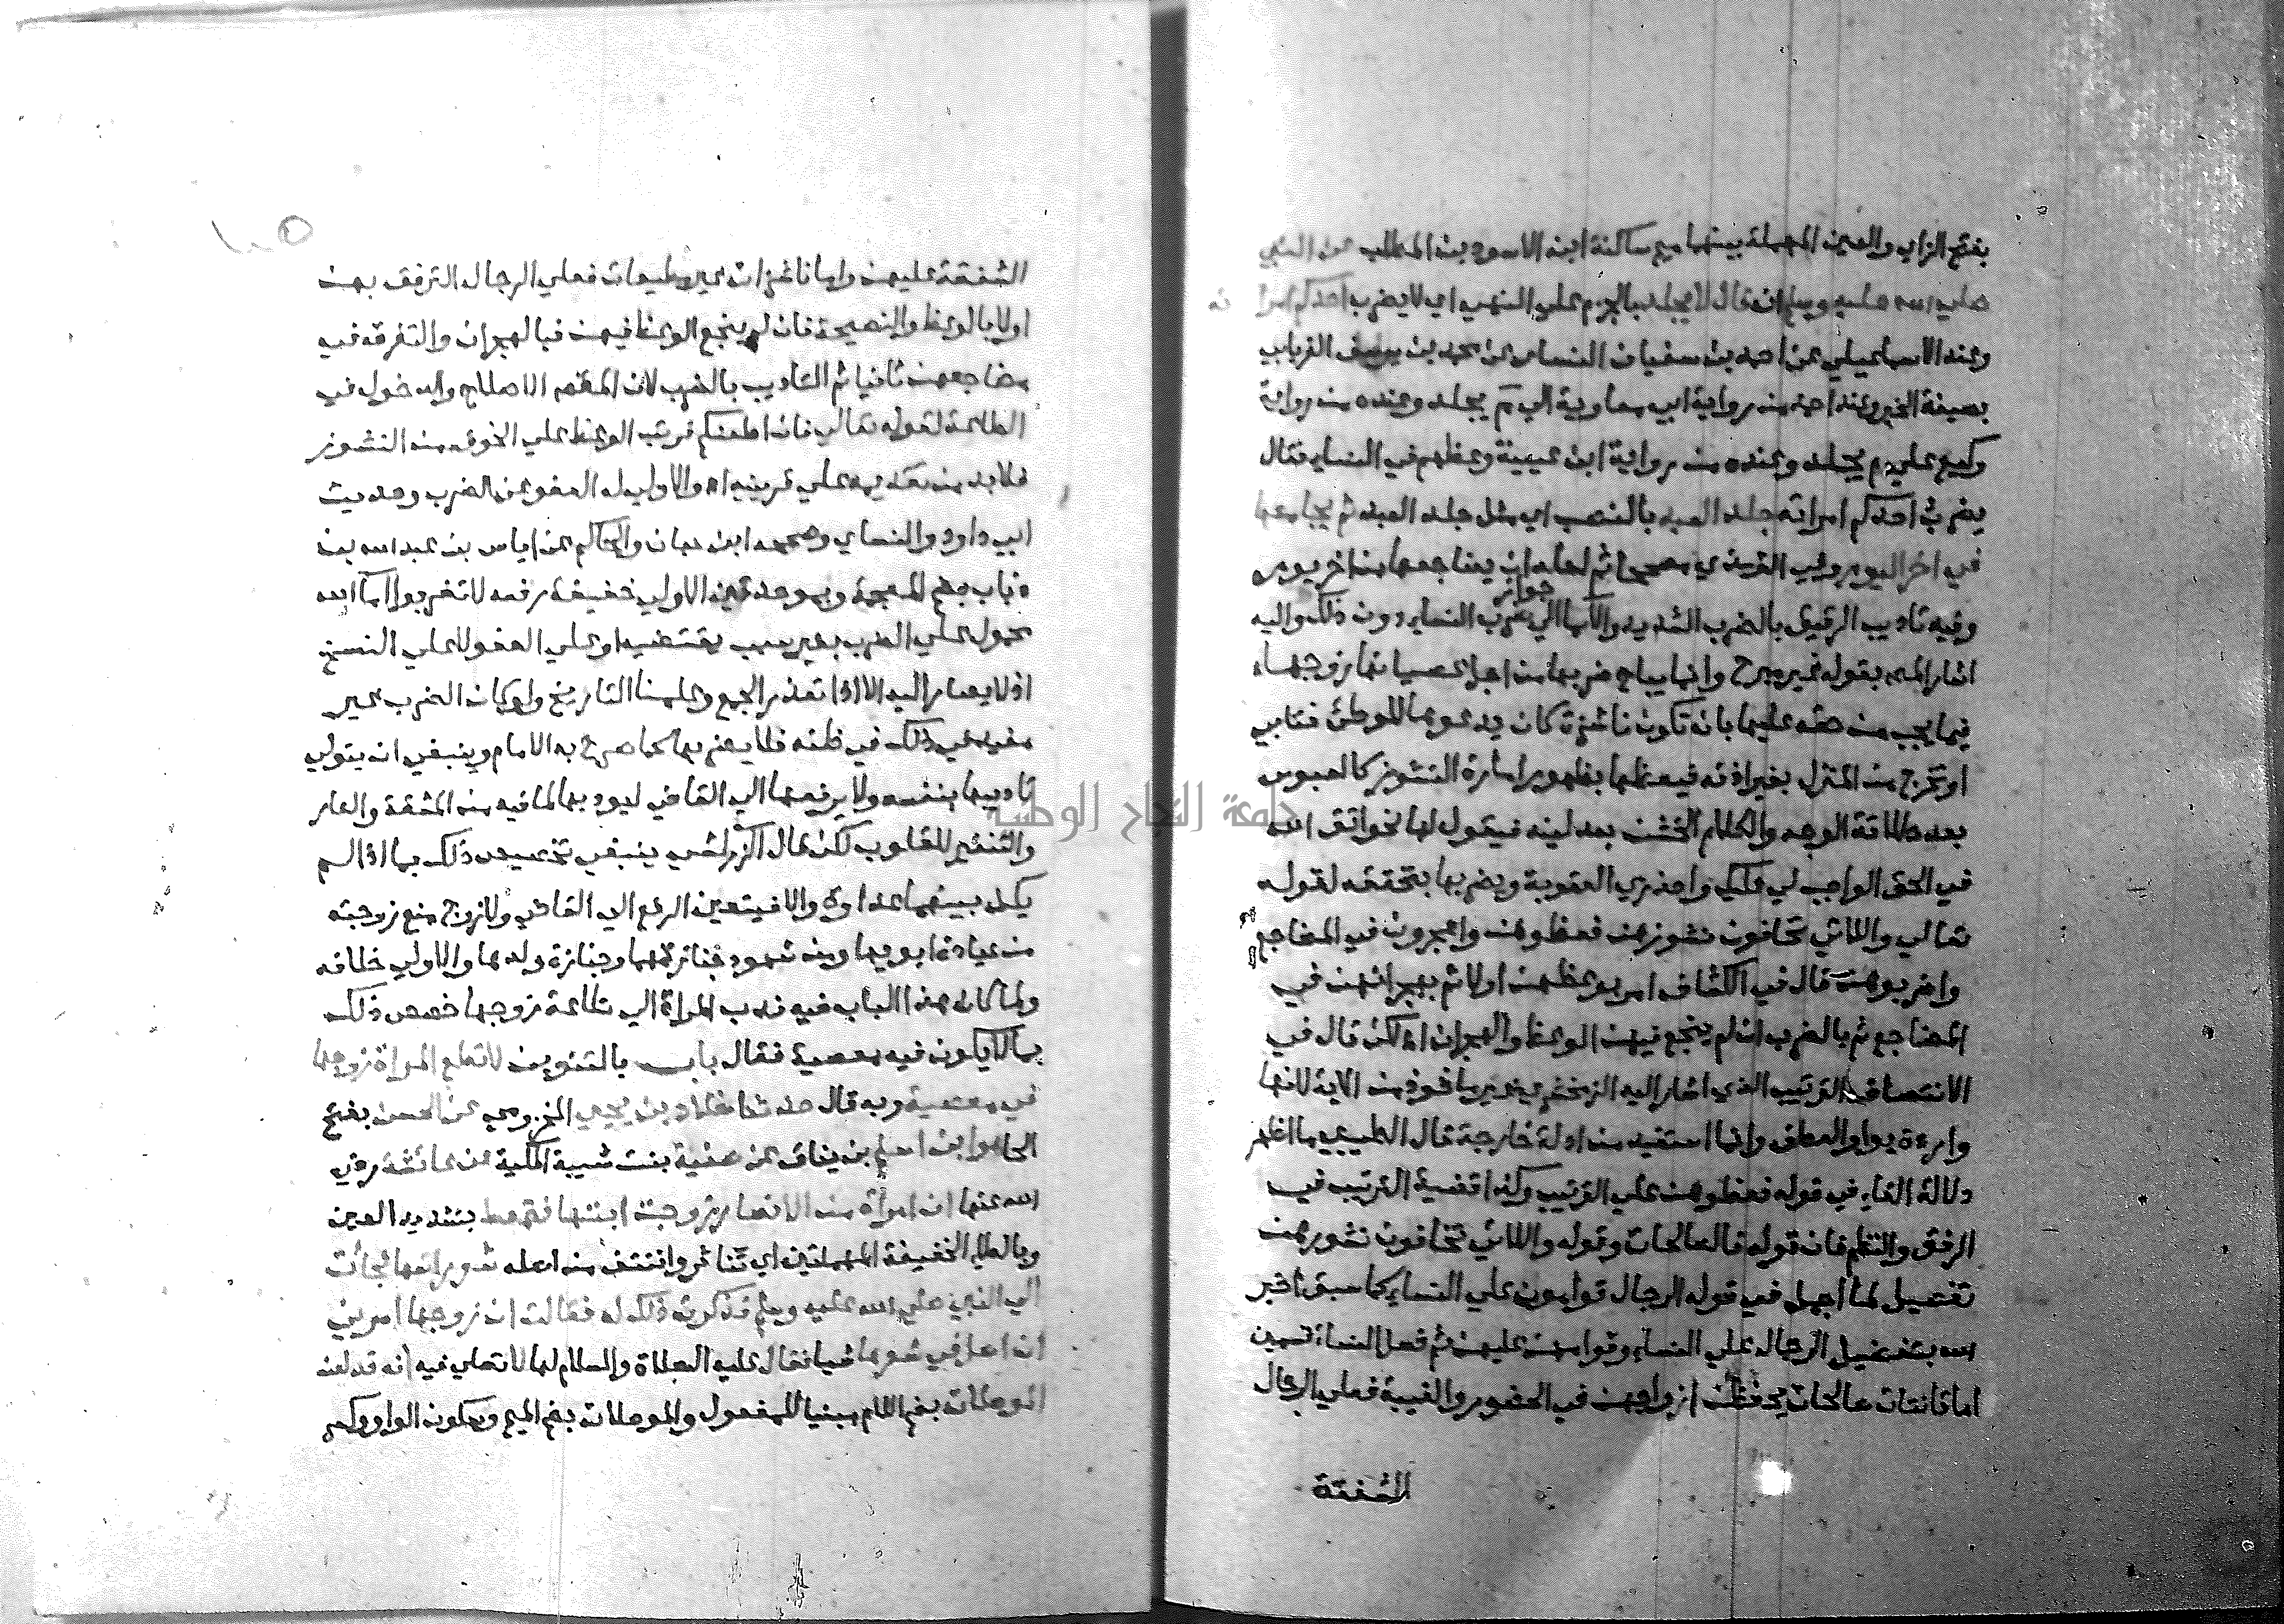 بفتح الزاي والعين المهملة بينهما ميم ساكنة ابن الاسود بن المطلب عن النبي
صلي الله عليه وسلم انه قال لا يجلد بالجزم علي النهي اي لا يضرب احدكم امراته
وعند الاسماعيلي عن احمد بن سفيان النساي عن محمد بن يوسف الفريابي
بصيغة الخبر وعند احمد من رواية ابي معاوية الي م يجلد وعنده من رواية
وكيع علي م يجلد وعنده من رواية ابن عيينة وعظهم في النساء فقال
يضرب احدكم امراته جلد العبد بالنصب اي مثل جلد العبد ثم يجامعها
في اخر اليوم وفي الترمذي مصححا ثم لعله ان يضاجعها من اخر يومه
جواز
وفيه تاديب الرقيق بالضرب الشديد والايما الي ضرب النساء دون ذلك واليه
اشار المص بقوله غير مبرح وانما يباح ضربها من اجل عصيانها زوجها
فيما يجب من حقه عليها بان تكون ناشزة كان يدعوها للوطئ فتابي
او تخرج من المنزل بغير اذنه فيعظها بظهور امارة النشوز كالعبوس
بعد طلاقة الوجه والكلام الخشن بعد لينه فيقول لها نحو اتق الله
في الحق الواجب لي عليك واحذري العقوبة ويضربها بتحققه لقوله
تعالي واللاتي تخافون نشوزهن فعظوهن واهجروهن في المضاجع
واضربوهن قال في الكشاف امر بوعظهن اولا ثم بهجرانهن في
المضاجع ثم بالضرب ان لم ينجع فيهن الوعظ والهجران اه لكن قال في
الانتصاف الترتيب الذي اشار اليه الزمخشري غير ماخوذ من الاية لانها
واردة بواو العطف وانما استفيد من ادلة خارجة قال الطيبي ما اظهر
دلالة الفاء في قوله فعظوهن علي الترتيب وكذا قضية الترتيب في
الرفق والنظم فان قوله فالصالحات وقوله واللاتي تخافون نشوزهن
تفصيل لما اجمل في قوله الرجال قوامون علي النساء كما سبق اخبر
الله بتفضيل الرجال علي النساء وقوامهن عليهن ثم فصل النساء قسمين
اما قانتات صالحات يحفظن ازواجهن في الحضور والغيبة فعلي الرجال
الشفقة
الشفقة عليهن واما ناشزات غير مطيعات فعلي الرجال الترفق بهن
اولا بالوعظ والنصيحة فان لم ينجع الوعظ فيهن فبالهجران والتفرقه في
مضاجعهن ثانيا ثم التاديب بالضرب لان المقصد الاصلاح والدخول في
الطاعة لقوله تعالي فان اطعنكم فرتب الوعظ علي الخوف من النشوز
فلا بد من تقديمه علي قرينيه اه والاولي له العفو عن الضرب وحديث
ابي داود والنساي وصححه ابن حبان والحاكم عن اياس بن عبد الله بن
ذباب بضم المعجمة وبموحدتين الاولي خفيفة رفعه لا تضربوا اما الله
محمول علي الضرب بغير سبب يقتضيه او علي العفو لا علي النسخ
اذ لا يصار اليه الا اذا تعذر الجمع وعلمنا التاريخ ولو كان الضرب غير
مفيد في ذلك في ظنه فلا يضربها كما صرح به الامام وينبغي ان يتولي
تاديبها بنفسه ولا يرفعها الي القاضي ليودبها لما فيه من المشقة والعار
والتنفير للقلوب لكن قال الزركشي ينبغي تخصيص ذلك بما اذا لم
يكن بينهما عداوة والا فيتعين الرفع الي القاضي وللزوج منع زوجته
من عيادة ابويها ومن شهود جنازتهما وجنازة ولدها والاولي خلافه
ولما كان هذا الباب فيه ندب المراة الي طاعة زوجها خصص ذلك
بما لا يكون فيه معصية فقال باب بالتنوين لا تطع المراة زوجها
في معصية وبه قال حدثنا خلاد بن يحيي المخزومي عن الحسن بفتح
الحا هو ابن مسلم بن يناق عن صفية بنت شيبة المكية عن عائشة رضي
الله عنها ان امراة من الانصار زوجت ابنتها فتمعط بتشديد العين
وبالطاء الخفيفة المهملتين اي تناثر وانتتف من اصله شعر راسها فجات
الي النبي صلي الله عليه وسلم فذكرت ذلك له فقالت ان زوجها امرني
ان اصل في شعرها شيا فقال عليه الصلاة والسلام لها لا تصلي فيه انه قد لعن
الموصلات بضم اللام مبنيا للمفعول والموصلات بضم الميم وسكون الواو وكسر
جامعة النجاح الوطنية